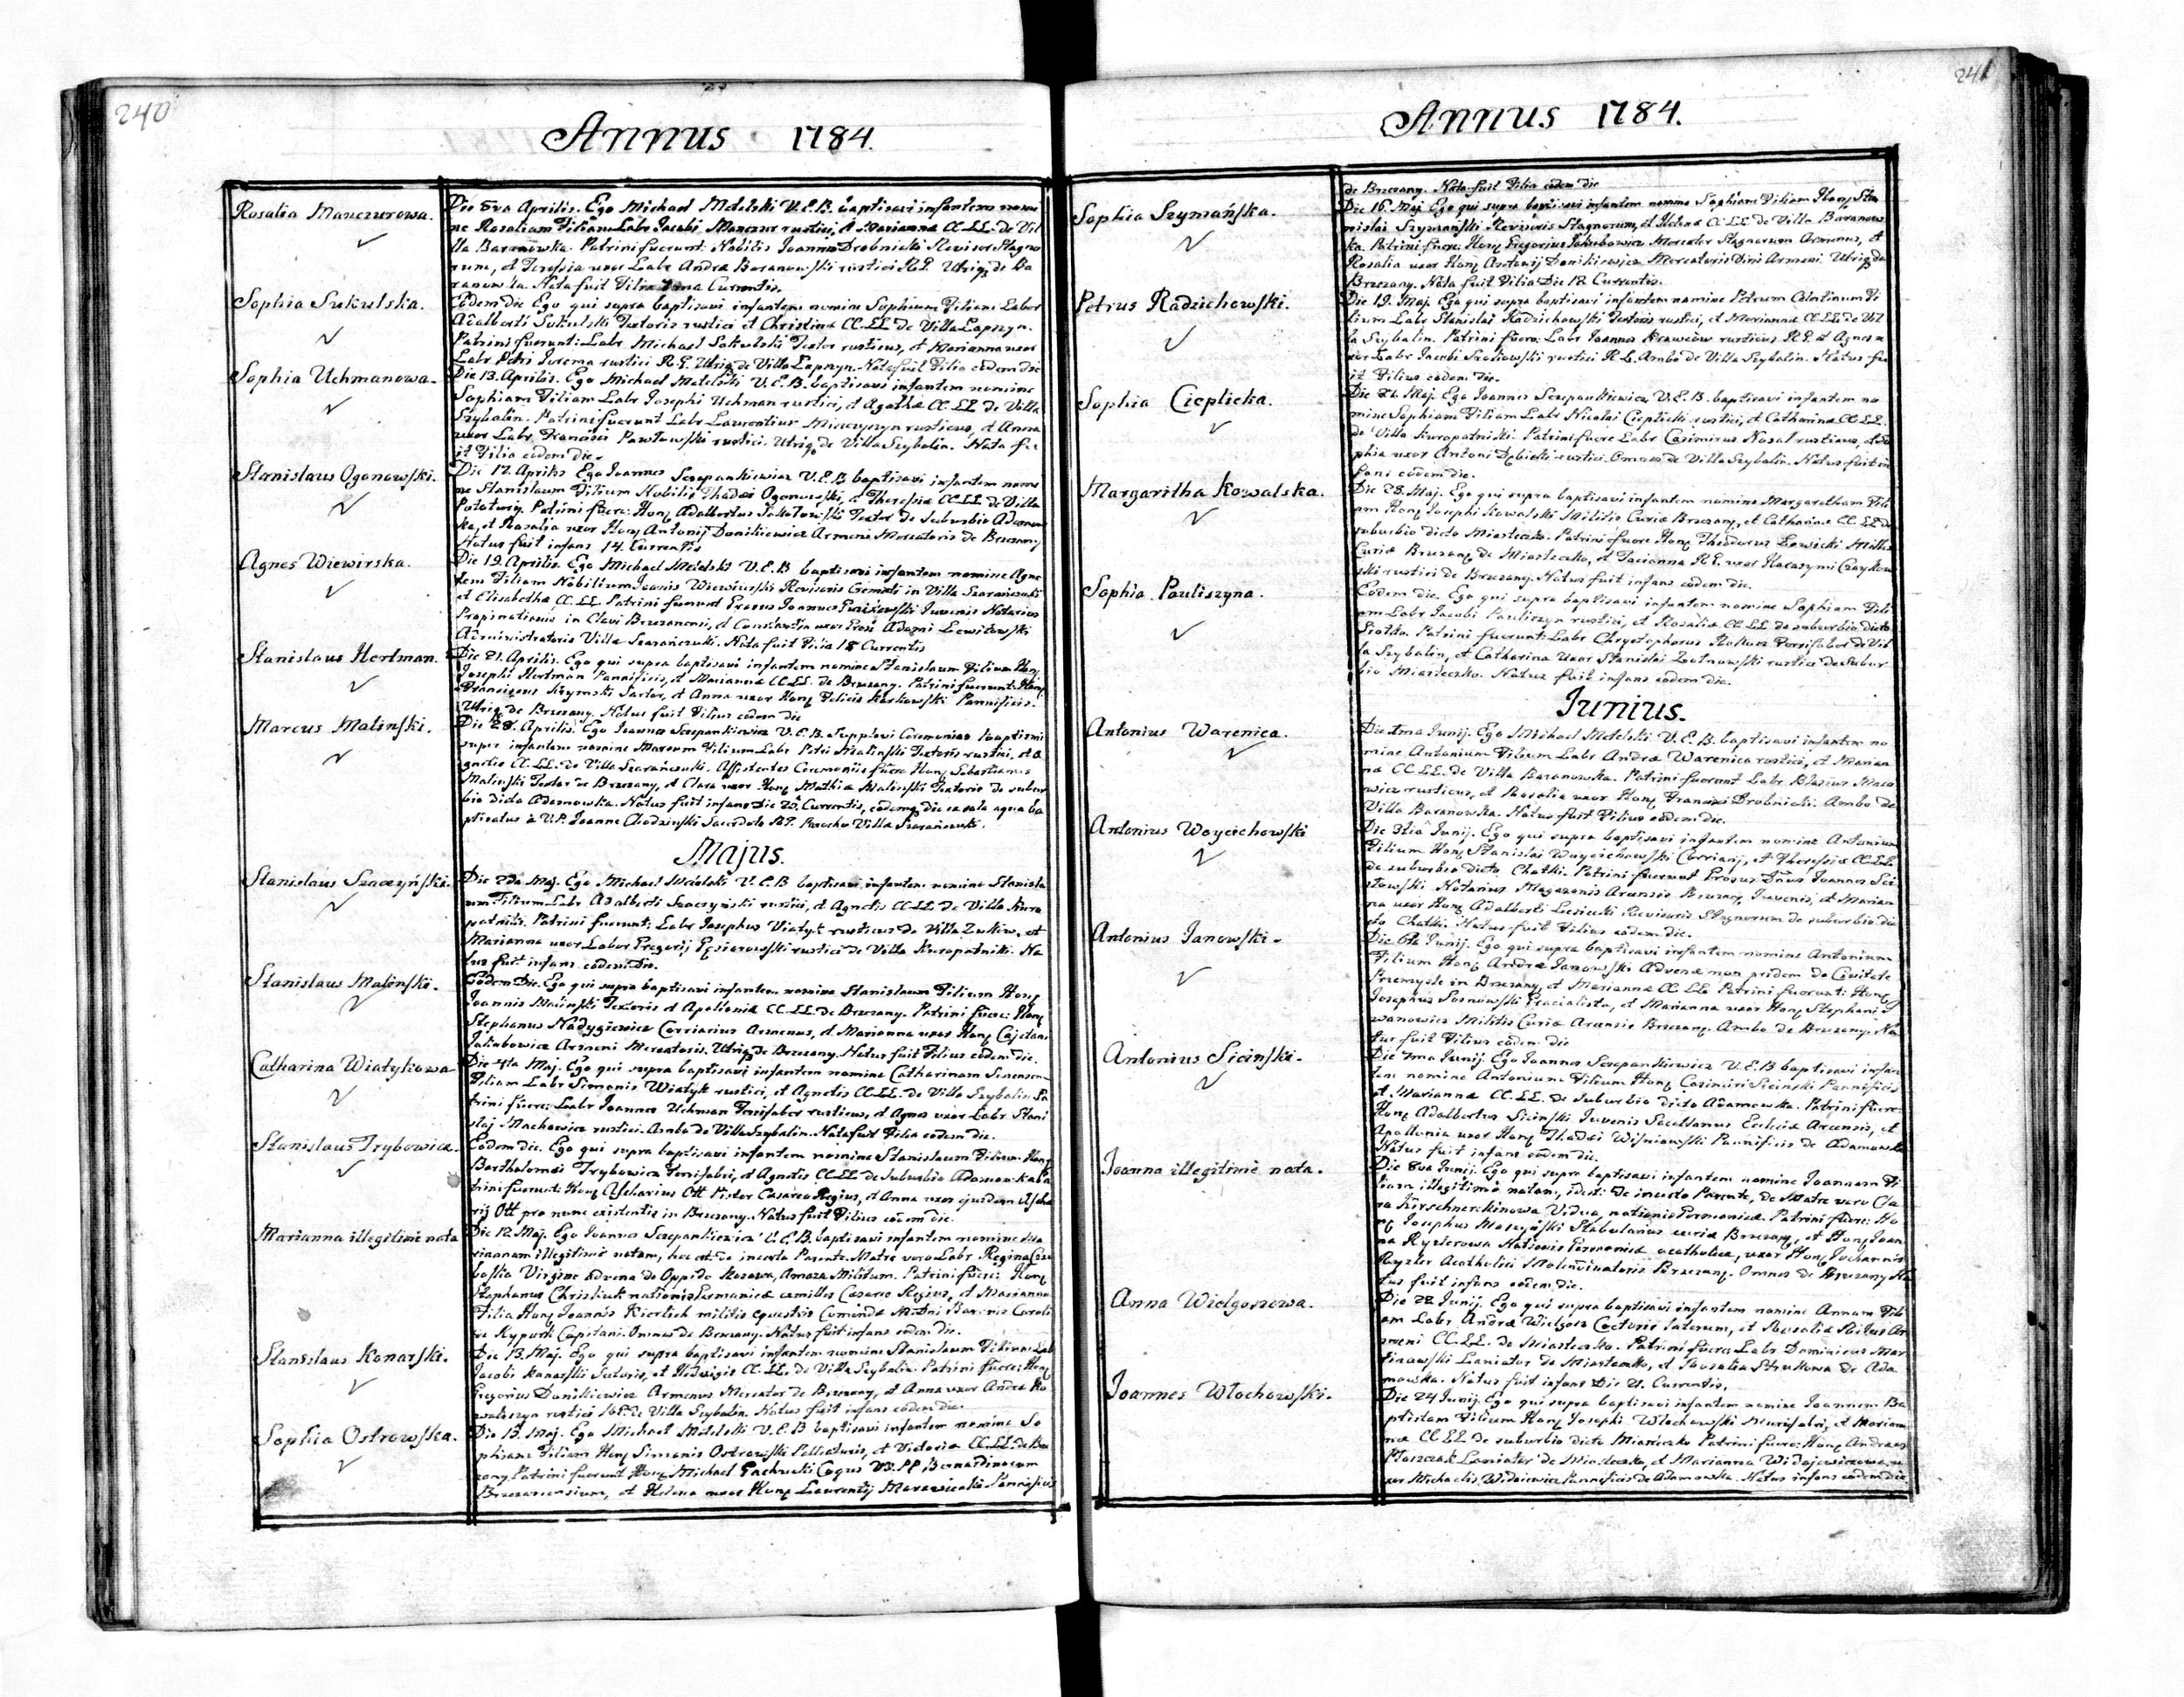 240
Annus 1784.
Rosalia Manczurowa.
Die 8va Aprilis. Ego Michael Metelski V.E.B. baptisavi infantem nomi
ne Rosaliam Filiam Labr Jacobi Manczur rustici, et Marianna CC.LL. de Vil
la Baranowka. Patrini fuerunt: Nobilis Joannes Drobnicki Revisor Stagno
rum, et Teressia uxor Labr Andrea Baranowski rustici R.G. Utriq de Ba
ranowka. Nata fuit Filia Currentis.
Sophia Sukulska.
Eodem die Ego qui supra baptisavi infantem nomine Sophiam Filiam Labor
Adalberti Sukulski Textoris rustici et Christina CC.LL. de Villa Lapszyn.
Patrini fuerunt: Labr Michael Sukulski Textor rusticus, et Marianna uxor
Labr Petri Jurema rustici R.G. Utriq de Villa Lapszyn. Nata fuit Filia eodem die
Sophia Uchmanowa.
Die 13. Aprilis. Ego Michael Metelski V.E.B. baptisavi infantem nomine
Sophiam Filiam Labr Josephi Uchman rustici, et Agatha CC.LL. de Villa
Szybalin. Patrini fuerunt Labr Laurentius rusticus, et Anna
uxor Labr Francisci Pawlowski rustici. Utriq de Villa Szybalin. Nata fu
it Filia eodem die.
Stanislaus Ogonowski.
Die 17. Aprilis Ego Joannes Szczepankiewicz V.E.B baptisavi infantem nomi
ne Stanislaum Filium Nobilis Thadai Ogonowski, et Theressia CC.LL. de Villa
Potutory. Patrini fuere: Hong Adalbertus Textor de Suburbio Adamow
ka, et Rosalia uxor Hong Antonij Donikiewicz Armeni Mercatoris de Brzezany
Natus fuit infans 14. Currentis
Agnes Wiewirska.
Die 19. Aprilis. Ego Michael Metelski V.E.B baptisavi infantem nomine Agne
tem Filiam Nobilium Joanis Wiewiurski Revisoris in Villa Szaranczuki
et Elisabetha CC.LL. Patrini fuerunt Joannes Juvenis Notarius
Propinationis in Clavi Brzezanensi, et Constantia uxor Adami Lewitowski
Administratoris Villa Szaranczuki. Nata fuit Filia 18 Currentis
Stanislaus Hertman.
Die 21. Aprilis. Ego qui supra baptisavi infantem nomine Stanislaum Filium Hong
Josephi Hertman Pannificis, et Marianna CC.LL. de Brzezany. Patrini fuerunt: Hong
Franciscus Sartor, et Anna uxor Hong Felicis Karkowski Pannificis.
Utriq de Brzezany. Natus fuit Filius eodem die
Marcus Malinski.
Die 28. Aprilis. Ego Joannes Szczepankiewicz V.E.B. Supplevi Ceremonias baptismi
super infantem nomine Marcum Filium Labr Petri Malinski Textoris rustici, et A
gnetis CC.LL. de Villa Szaranczuki. Assistentes Ceremoniis fuere Hong Sebastianus
Malinski Textor de Brzezany, et Clara uxor Hong Mathia Malinski Textoris de subur
bio dicto Adamowka. Natus fuit infans Die 25. Currentis, eademq die aqua ba
ptisatus a V.P. Joanne Chodzinski Sacerdote R.G. Parocho Villa Szaranczuki.
Majus.
Stanislaus Szaczyński.
Die 2da Maj. Ego Michael Metelski V.E.B baptisavi infantem nomine Stanisla
um Filium Labr Adalberti Szaczynski rustici, et Agnetis CC.LL. de Villa Kuro
patniki. Patrini fuerunt: Labr Josephus Wiatyk rusticus de Villa Zukow, et
Marianna uxor Labor Gregorij Gąsierowski rustici de Villa Kuropatniki. Na
tus fuit infans eodem Die.
Stanislaus Malinski.
Eodem Die. Ego qui supra baptisavi infantem nomine Stanislaum Filium Hong
Joannis Malinski Textoris et Apolonia CC.LL. de Brzezany. Patrini fuere: Hong
Stephanus Nadygiewicz Cerriarius Armenus, et Marianna uxor Hong Cajetani
Jakubowicz Armeni Mercatoris. Utriq de Brzezany. Natus fuit Filius eodem die.
Catharina Wiatykowa
Die 4ta Maj. Ego qui supra baptisavi infantem nomine Catharinam Senensem
Filiam Labr Simonis Wiatyk rustici, et Agnetis CC.LL. de Villa Szybalin Pa
trini fuere: Labr Joannes Uchman rusticus, et Agnes uxor Labr Stani
slaj Machowicz rustici. Ambo de Villa Szybalin. Nata fuit Filia eodem die.
Stanislaus Trybowicz.
Eodem die. Ego qui supra baptisavi infantem nomine Stanislaum Filium Hong
Bartholomei Trybowicz et Agnetis CC.LL. de Suburbio Adamowka Pa
trini fuerunt: Hong Ott Pistor Casareo Regius, et Anna uxor ejusdem
Ott pro nunc existentis in Brzezany. Natus fuit Filius eodem die.
Marianna illegitimè nata
Die 12 Maj. Ego Joannes Szczepankiewicz V.E.B. baptisavi infantem nomine Ma
riannam illegitimè natam, hoc est de incerto Parente. Matre vero Labr Regina
Virgine advena de Oppido Kozowa, Militum. Patrini fuere: Hong
Stephanus Christiuk nationis Germanica Casareo Regius, et Marianna
Filia Hong Joannis Kierlich militis equestris Baronis Caroli
de Capitani. Omnes de Brzezany. Natus fuit infans eodem die.
Stanislaus Konarski.
Die 13. Maj. Ego qui supra baptisavi infantem nomine Stanislaum Filium Lab
Jacobi Konarski Sutoris, et Hedwigis CC.LL. de Villa Szybalin. Patrini fuere: Hong
Gregorius Donikiewicz Armenus Mercator de Brzezany, et Anna uxor Andrea Ko
walczyn rustici R.G. de Villa Szybalin. Natus fuit infans eodem die.
Sophia Ostrowska.
Die 15. Maj. Ego Michael Metelski V.E.B baptisavi infantem nomine So
phiam Filiam Hong Simonis Ostrowski Pellicaris, et Victoria CC.LL. de Brze
zany. Patrini fuerunt Hong Michael Cocus VV. PP Bernardinorum
Brzezanensium, et Helena uxor Hong Laurentij Pannificis
241
Annus 1784.
de Brzezany. Nata fuit Filia eodem die
Sophia Szymańska.
Die 16. Maj. Ego qui supra baptisavi infantem nomine Sophiam Filiam Hong Sta
nislai Szymański Revisoris Stagnorum, et Helena CC.LL. de Villa Baranow
ka. Patrini fuere: Hong Gregorius Jakubowicz Mercator Stagnorum Armenus, et
Rosalia uxor Hong Antonij Donikiewicz Mercatoris Vini Armeni. Utriq de
Brzezany. Nata fuit Filia Die 12 Currentis.
Petrus Radzichowski.
Die 19. Maj. Ego qui supra baptisavi infantem nomine Petrum Celestinum Fi
lium Labr Stanislai Radzichowski Textoris rustici, et Marianna CC.LL. de Vil
la Szybalin. Patrini fuere: Labr Joannes Krawciow rusticus R.G. et Agnes u
xor Labr Jacobi rustici R.L. Ambo de Villa Szybalin. Natus fu
it Filius eodem die.
Sophia Cieplicka.
Die 21. Maj. Ego Joannes Szczepankiewicz V.E.B. baptisavi infantem no
mine Sophiam Filiam Labr Nicolai Cieplicki rustici, et Catharina CC.LL.
de Villa Kuropatniki. Patrini fuere Labr Casimirus Nosal rusticus, et So
phia uxor Antoni Dębicki rustici. Omnes de Villa Szybalin. Natus fuit in
fans eodem die.
Margaritha Kowalska.
Die 28. Maj. Ego qui supra baptisavi infantem nomine Margaretham Fili
am Hong Josephi Kowalski Militis Curia Brzezany, et Catharina CC.LL. de
suburbio dicto Miasteczko. Patrini fuere Hong Theodorus Lewicki Miles
Curia Brzezany de Miasteczko, et Tacianna R.G. uxor Harasymi Czaykow
ski rustici de Brzezany. Natus fuit infans eodem die.
Sophia Pauliszyna.
Eodem die. Ego qui supra baptisavi infantem nomine Sophiam Fili
am Labr Jacobi Pauliszyn rustici, et Rosalia CC.LL. de suburbio dicto
Siolko. Patrini fuerunt: Labr Chrystophorus de Vil
la Szybalin, et Catharina Uxor Stanislai Zootnowski rustici de Subur
bio Miasteczko. Natus fuit infans eodem die.
Junius.
Antonius Warenica.
Die 1ma Junij. Ego Michael Metelski V.E.B. baptisavi infantem no
mine Antonium Filium Labr Andrea Warenica rustici, et Marian
na CC.LL. de Villa Baranowka. Patrini fuerunt Labr Blasius
wicz rusticus, et Rosalia uxor Hong Francisci Drobnicki. Ambo de
Villa Baranowka. Natus fuit Filius eodem die.
Antonius Woyciechowski
Die 3tia Junij. Ego qui supra baptisavi infantem nomine Antonium
Filium Hong Stanislai Woyciechowski Cerriarij, et Theressia CC.LL.
de suburbio dicto Chatki. Patrini fuerunt Dnus Joannes
Notarius Magazenis Arcensis Brzezany Juvenis, et Marian
na uxor Hong Adalberti Lesiecki Revisoris Stagnorum de suburbio di
cto Chatki. Natus fuit Filius eodem die.
Antonius Janowski.
Die 6ta Junij. Ego qui supra baptisavi infantem nomine Antonium
Filium Hong Andrea Janowski Advena non pridem de Civitate
Przemysle in Brzezany, et Marianna CC LL. Patrini fuerunt: Hong
Josephus Sosnowski et Marianna uxor Hong Stephani I
wanowicz Militis Curia Arcensis Brzezany. Ambo de Brzezany. Na
tus fuit Filius eodem die
Antonius Sicinski.
Die 7ma Junij. Ego Joannes Szczepankiewicz V.E.B baptisavi infan
tem nomine Antonium Filium Hong Casimiri Sicinski Pannificis
et Marianna CC.LL. de Suburbio dicto Adamowka. Patrini fuere:
Hong Adalbertus Sicinski Juvenis Ecclesia Arcensis, et
Apollonia uxor Hong Thadai Wiśniowski Pannificis de Adamowka
Natus fuit infans eodem die.
Joanna illegitimè nata.
Die 8va Junij. Ego qui supra baptisavi infantem nomine Joannam Fi
liam illegitimè natam, id est: De incerto Parente, de Matre vero Cla
ra Kirschnereckinowa Vidua, nationis Germanica. Patrini fuere: Ho
ng Josephus Stabularius curia Brzezany, et Hong Joan
na Ryzlerowa Nationis Germanica acatholica, uxor Hong Jochannis
Ryzler Acatholici Brzezany. Omnes de Brzezany Na
tus fuit infans eodem die.
Anna Wielgoszowa.
Die 22 Junij. Ego qui supra baptisavi infantem nomine Annam Fili
am Labr Andrea Wielgosz Coctoris laterum, et Rosalia Ar
meni CC.LL. de Miasteczko. Patrini fuere: Labr Dominicus Mar
Laniator de Miasteczko, et Rosalia de Ada
mowka. Natus fuit infans Die 21. Currentis.
Joannes Włochowski.
Die 24 Junij. Ego qui supra baptisavi infantem nomine Joannem Ba
ptistam Filium Hong Josephi Włochowski Murifabri, et Marian
na CC LL de suburbio dicto Miasteczko Patrini fuere: Hong Andreas
Ptaszczak Laniator de Miasteczko, et Marianna Widajewiczowa u
xor Michaelis Widaiewicz Pannificis de Adamowka. Natus infans eodem die